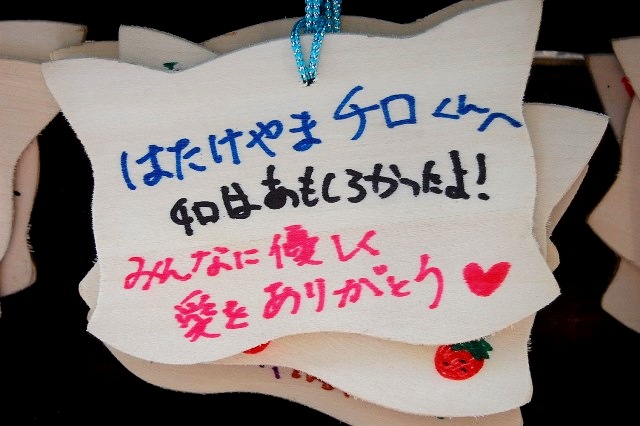 はたけやまチロくんへ
チロはおもしろかったよ!
みんなに優しく
愛をありがとう